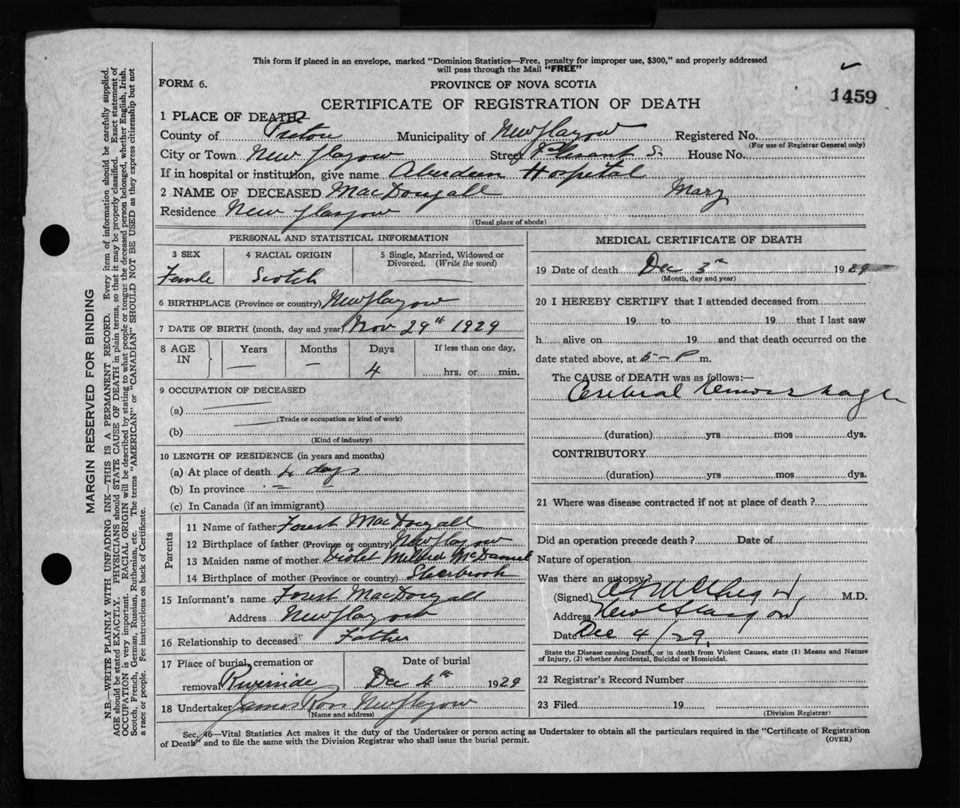 This form if placed in an envelope, marked "Dominion Statistics—Free, penalty for improper use, $300," and properly addressed
will pass through the Mail "FREE"
FORM 6.
PROVINCE OF NOVA SCOTIA
1459
CERTIFICATE OF REGISTRATION OF DEATH
1 PLACE OF DEATH
County of Pictou Municipality of New Glasgow Registered No.
(For use of Registrar General only)
City or Town New Glasgow Street Pleasant St House No.
If in hospital or institution, give name Aberdeen Hospital
2 NAME OF DECEASED MacDougall Mary
Residence New Glasgow
(Usual place of abode)
PERSONAL AND STATISTICAL INFORMATION
3 SEX 4 RACIAL ORIGIN 5 Single, Married, Widowed or
Divorced. (Write the word)
Female Scotch
6 BIRTHPLACE (Province or country) New Glasgow
7 DATE OF BIRTH (month, day and year) Nov 29th 1929
8 AGE IN Years Months Days If less than one day,
— — 4 hrs. or min.
9 OCCUPATION OF DECEASED
(a)
(Trade or occupation or kind of work)
(b)
(Kind of industry)
10 LENGTH OF RESIDENCE (in years and months)
(a) At place of death 4 days
(b) In province
(c) In Canada (if an immigrant)
Parents
11 Name of father Forest MacDougall
12 Birthplace of father (Province or country) New Glasgow
13 Maiden name of mother Violet Mildred McDaniel
14 Birthplace of mother (Province or country) Sherbrook
15 Informant's name Forest MacDougall
Address New Glasgow
16 Relationship to deceased Father
17 Place of burial, cremation or removal Riverside Date of burial Dec 4th 1929
18 Undertaker James Ross New Glasgow
(Name and address)
MEDICAL CERTIFICATE OF DEATH
19 Date of death Dec 3rd 1929
(Month, day and year)
20 I HEREBY CERTIFY that I attended deceased from
19 to 19 that I last saw
h alive on 19 and that death occurred on the
date stated above, at 5 - P m.
The CAUSE of DEATH was as follows:—
Cerebral hemorrhage
(duration) yrs mos dys.
CONTRIBUTORY
(duration) yrs mos dys.
21 Where was disease contracted if not at place of death?
Did an operation precede death? Date of
Nature of operation
Was there an autopsy?
(Signed) M.D.
Address New Glasgow
Date Dec 4/29
State the Disease causing Death, or in death from Violent Causes, state (1) Means and Nature
of Injury, (2) whether Accidental, Suicidal or Homicidal.
22 Registrar's Record Number
23 Filed 19
(Division Registrar)
Sec. 46—Vital Statistics Act makes it the duty of the Undertaker or person acting as Undertaker to obtain all the particulars required in the "Certificate of Registration
of Death" and to file the same with the Division Registrar who shall issue the burial permit. (OVER)
MARGIN RESERVED FOR BINDING
N.B.—WRITE PLAINLY WITH UNFADING INK—THIS IS A PERMANENT RECORD. Every item of information should be carefully supplied.
AGE should be stated EXACTLY. PHYSICIANS should STATE CAUSE OF DEATH in plain terms, so that it may be properly classified. Exact statement of
OCCUPATION is very important. RACIAL ORIGIN will be described by stating to what people or tongue the deceased person belonged, whether English, Irish,
Scotch, French, German, Russian, Ruthenian, etc. The terms "AMERICAN" or "CANADIAN" SHOULD NOT BE USED as they express citizenship but not
a race or people. Fee instructions on back of Certificate.